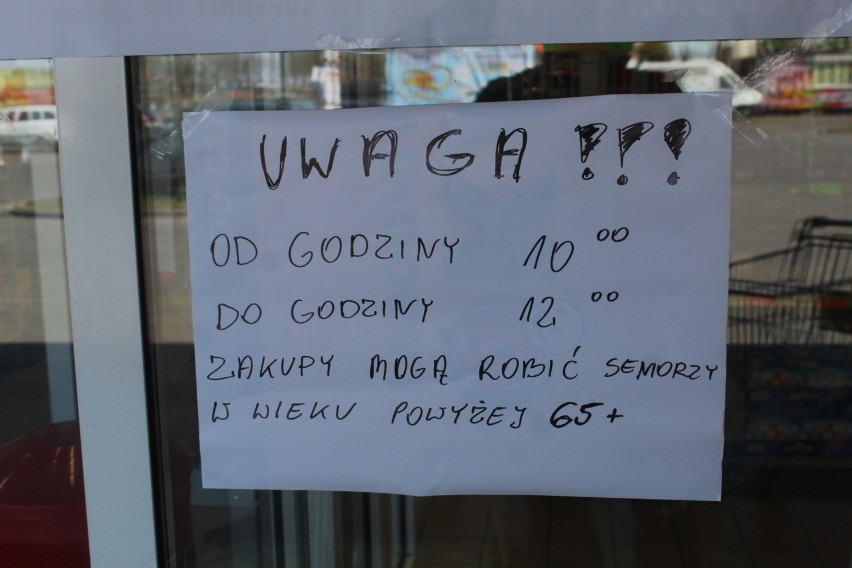 UWAGA !!!
OD GODZINY 10⁰⁰
DO GODZINY 12⁰⁰
ZAKUPY MOGĄ ROBIĆ SEMORZY
W WIEKU POWYŻEJ 65+